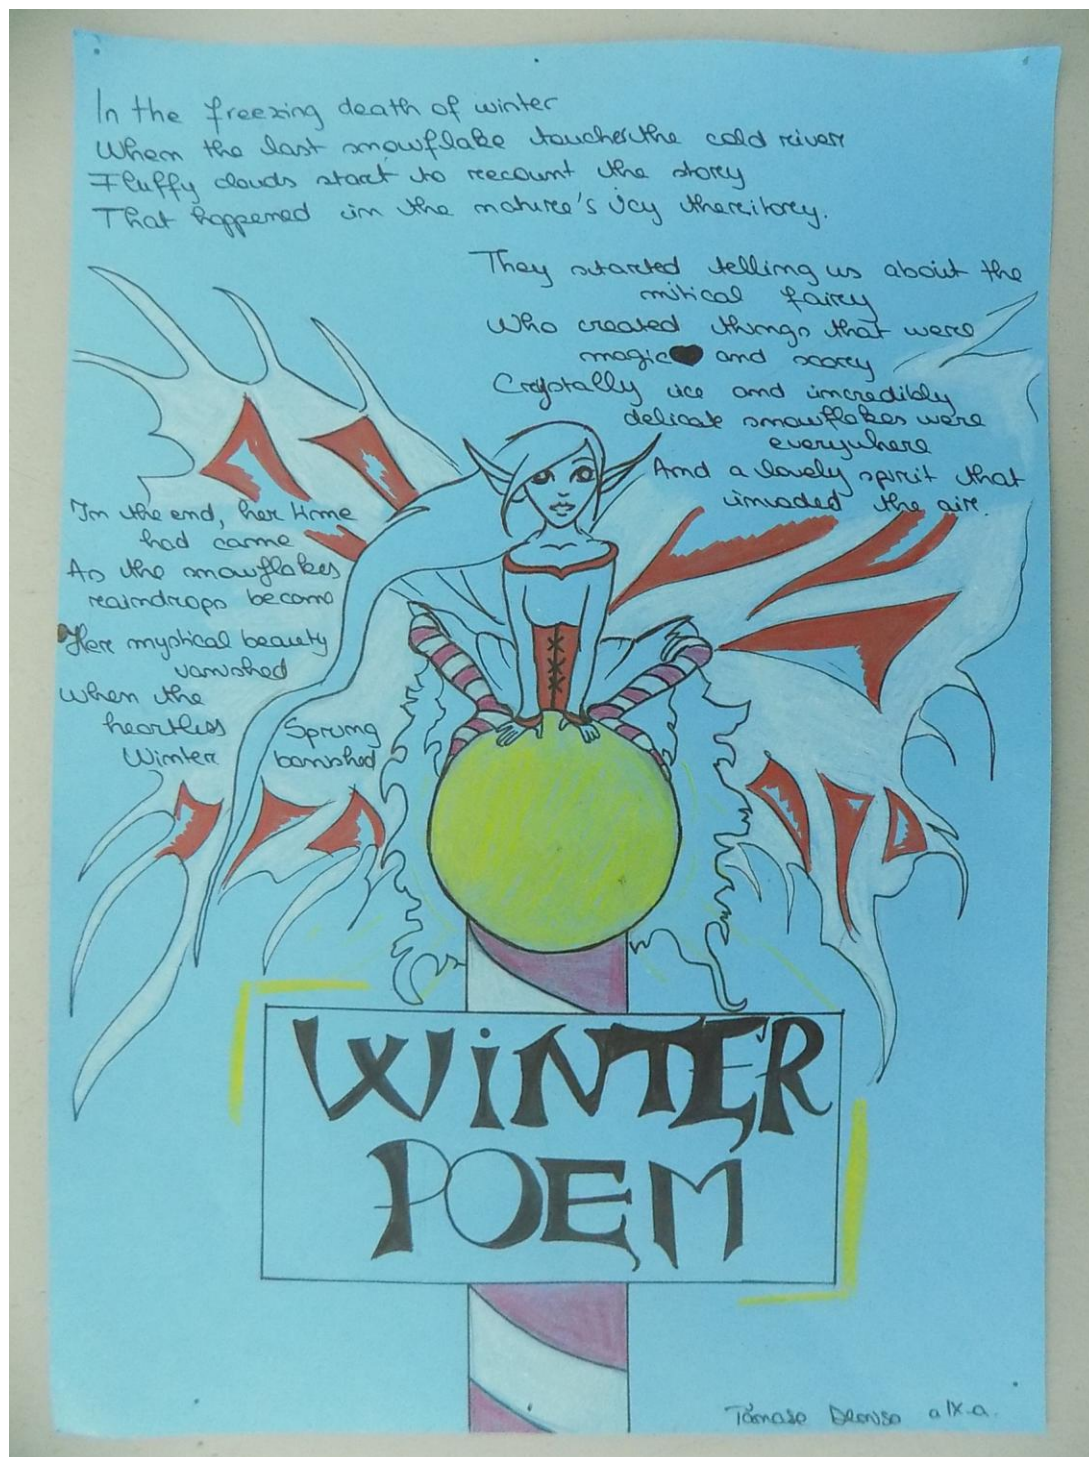 In the freezing death of winter
When the last snowflake touches the cold river
Fluffy clouds start to recount the story
That happened in the nature's icy theritory.
They started telling us about the
mitical fairy
Who created things that were
magic and scary
Crystally ice and incredibly
delicate snowflakes were
everywhere
And a lovely spirit that
invaded the air.
In the end, her time
had came
As the snowflakes
raindrops become
Her mystical beauty
vanished
When the
heartless Sprung
Winter banished
WiNTER
POEM
a IX-a.